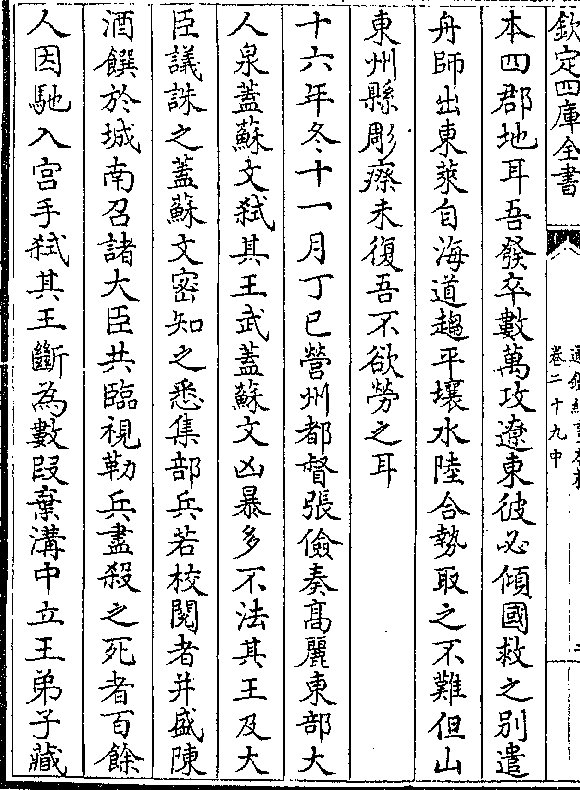 欽定四庫全書
卷二十九中
本四郡地耳吾發卒數萬攻遼東彼必傾國救之别遣
舟師出東萊自海道趨平壤水陸合勢取之不難但山
東州縣彫瘵未復吾不欲勞之耳
十六年冬十一月丁巳營州都督張儉奏高麗東部大
人泉蓋蘇文弑其王武蓋蘇文凶暴多不法其王及大
臣議誅之蓋蘇文密知之悉集部兵若校閱者并盛陳
酒饌於城南召諸大臣共臨視勒兵盡殺之死者百餘
人因馳入宫手弑其王斷為數段棄溝中立王弟子藏